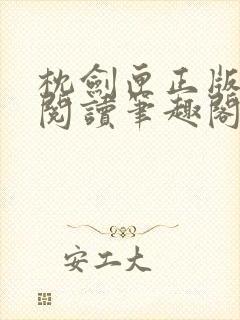 枕劍匣正版
閱讀筆趣閣
安工大